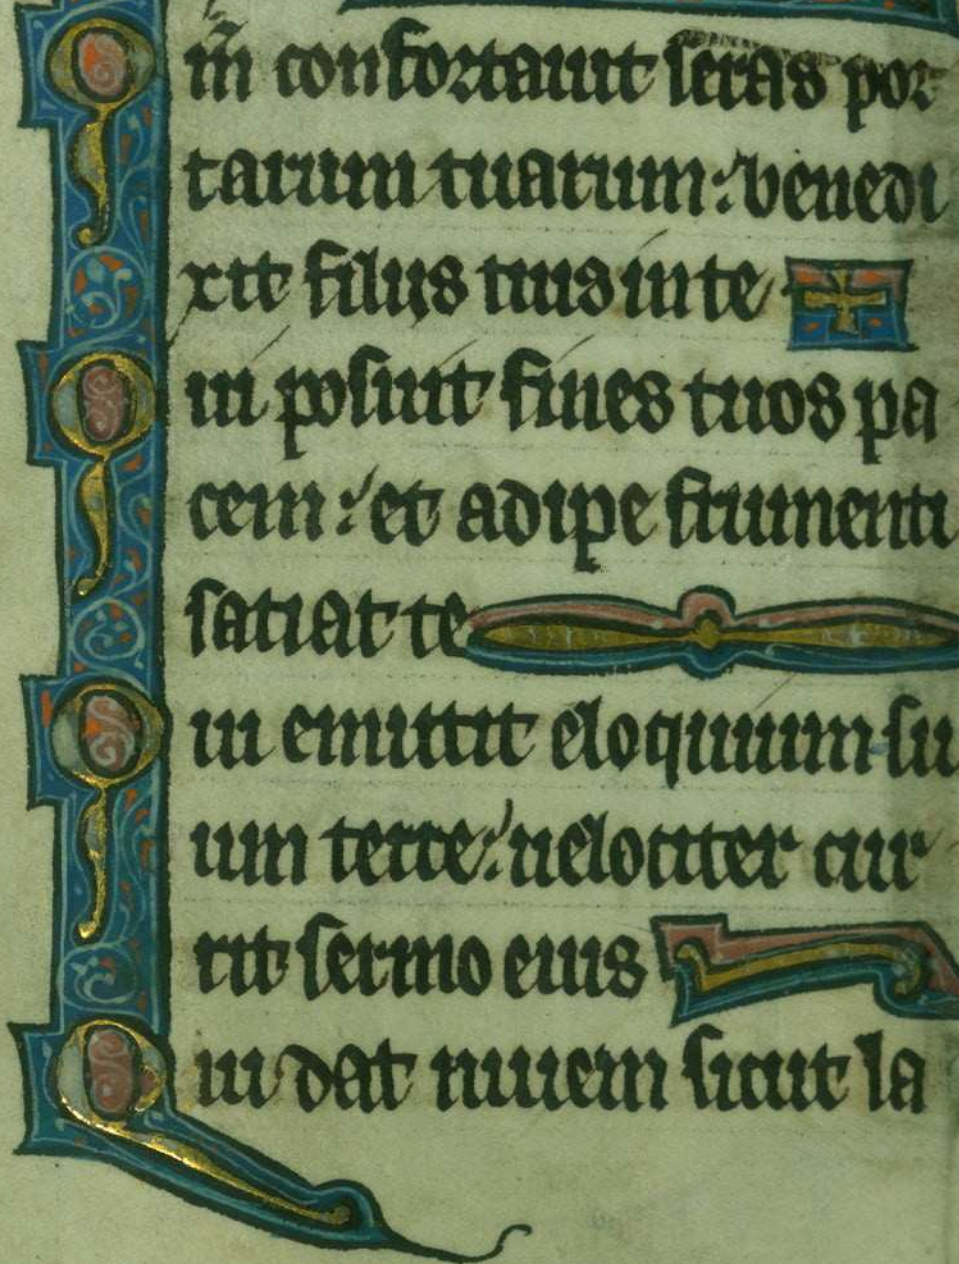 Qm̃ confortauit seras por
tarum tuarum: benedi
xit filiis tuis in te
Qui posuit fines tuos pa
cem: et adipe frumenti
satiat te
Qui emittit eloquium su
um terre: uelociter cur
rit sermo eius
Qui dat niuem sicut la